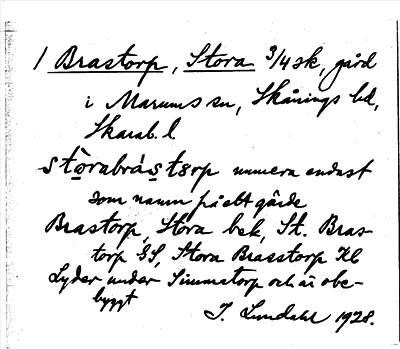 1 Brastorp, Stora 3/4 sk, gård
i Marums sn, Skånings hd,
Skarab. l
stòrabràstɜrp numera endast
som namn på ett gärde
Brastorp, Stora bek, St. Bras-
torp GS, Stora Brasstorp Hl
Lyder under Simmatorp och är obe-
byggt
J. Lundahl 1928.